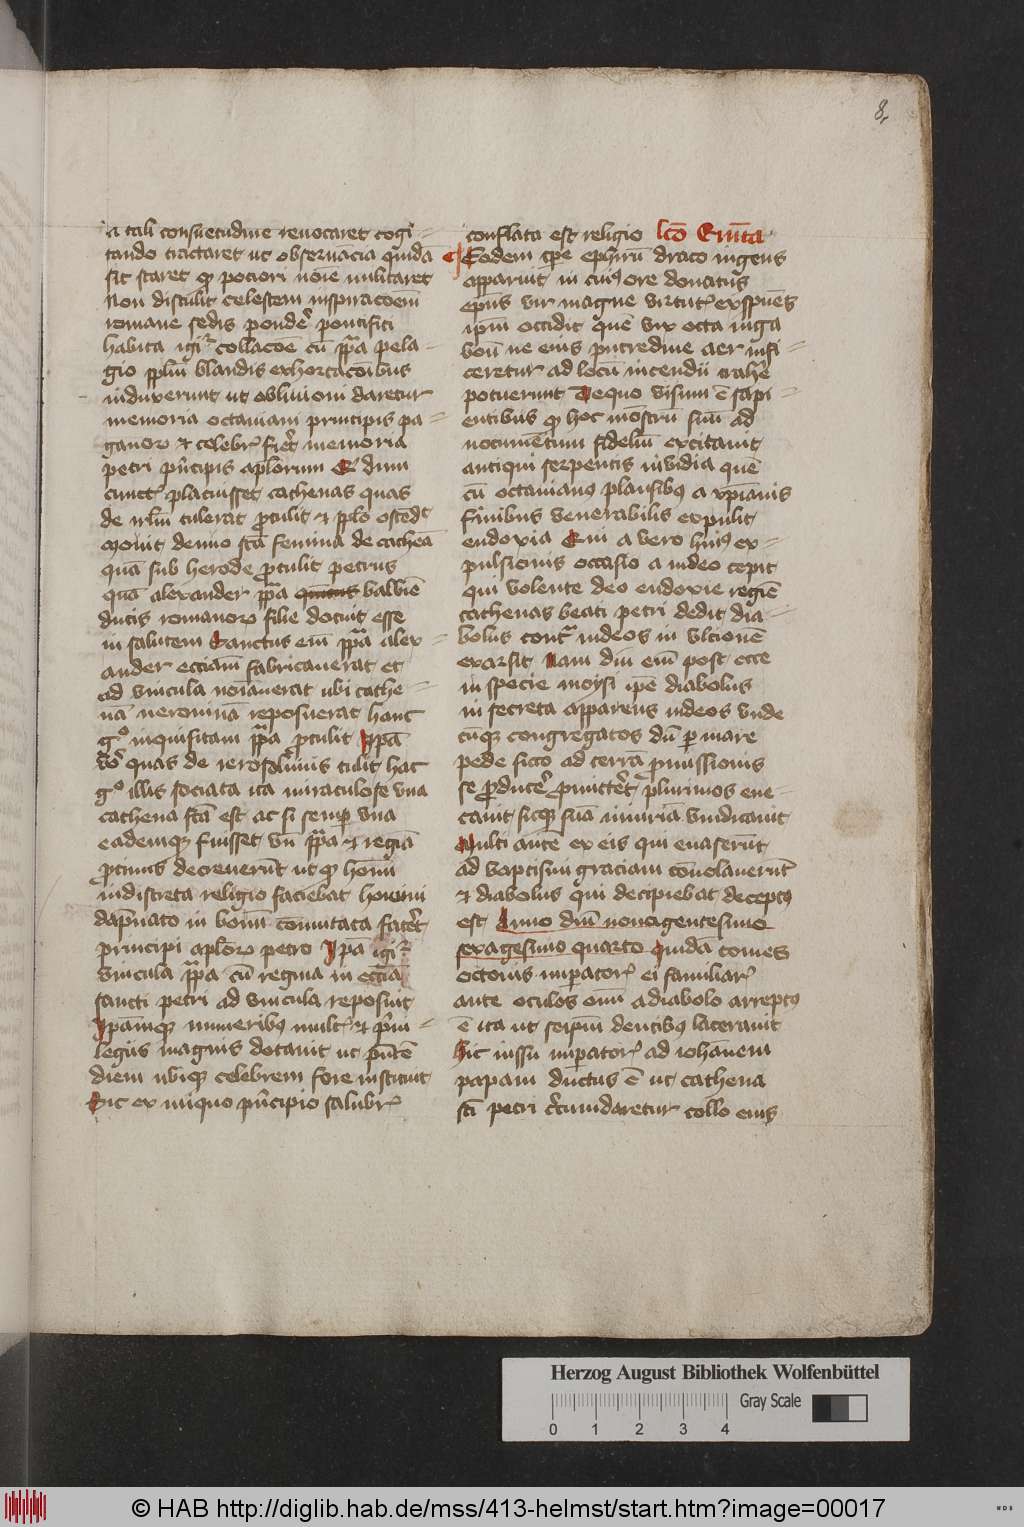 8
a tali consuetudine reuocaret cogi
tando tractaret ut obseruācia quidā
sic staret qd pociori nōie militaret
Non distulit celestem inspiracōem
romane sedis ponderꝭ pontifici
habita igiͬ collacōe cū ppa pela
gio pplm̄ blandis exhortacōibus
induxerunt ut obliuioni daretur
memoria octauiani principis pa
ganoꝝ et celebrꝭ fieret memoria
petri pͥncipis aplorum Et dum
cunctꝭ placuisset cathenas quas
de irlm̄ tulerat ꝓtulit et pplo ostēdit
Monuit denuo scā femina de cathea
quā sub herode ꝓtulit petrus
quā alexander ppa balbīe
ducis romanoꝝ filie docuit esse
in salutem Sanctus em̄ ppa alex
ander eccͣiam fabricauerat et
ad vincula noiauerat ubi cathe
nā neronianā reposuerat hanc
gͦ inquisitam ppa ꝓtulit Ipā
vͦ quas de ierosolimis tulit hac
gͦ illis sociata ita miraculose vna
cathena fc̄a est ac si semꝑ vna
eademqꝫ fuisset vn̄ ppa et regīa
ꝓtinus decreuerūt ut qd homī
indiscreta religio faciebat homini
dāpnato in bonū cōmutata faceret
principi aploꝝ petro Ipā igiͬ
vincula ppa cū regina in eccīa
sancti petri ad vincula reposuit
Ipamqꝫ muneribꝰ multꝭ et pͥui
legiis magnis dotauit ut pn̄tē
diem ubiqꝫ celebrem fore instituit
Sic ex iniquo pͥncipio salubrꝭ
conflata est religio lc̄o Quīta
Eodem tp̄e ephirū draco ingens
apparuit in cuiꝰ ore donatus
ep̄us vir magne virtutꝭ exspuēs
ipm̄ occidit quē vix octa iuga
boū ne eius putredine aer infi
ceretur ad locū incendii trahere
potuerunt De quo visum ē sapi
entibus qd hoc mōstrū suū ad
nocumētum fideliū excitauit
antiqui serpentis inuidia quē
cū octauianꝰ plausibꝰ a xp̄ianis
finibus venerabilis expulit
eudoxia Qui a vero huiꝰ ex
pulsionis occasio a iudeo cepit
qui volente deo eudoxie regīe
cathenas beati petri dedit dia
bolus contͣ iudeos in vlcionē
exarsit Nam diu em̄ post ecce
in specie moysi ipē diabolus
in secreta apparens iudeos vnde
cūqꝫ congregatos dū ꝑ mare
pede sicco ad terrā ꝓmissionis
se ꝓducere ꝓmitteret plurimos ene
cauit sicqꝫ suā iniuriā vindicauit
Multi autē ex eis qui euaserūt
ad baptismi graciam cōuolauerūt
et diabolus qui decipiebat deceptꝰ
est Anno dn̄i nonagentesimo
sexagesimo quarto Quidā comes
octonis imperatorꝭ ei familiarꝭ
ante oculos om̄i a diabolo arreptꝰ
ē ita ut seipm̄ dentibꝰ laceraret
Hic iussu imperatorꝭ ad iohānem
papam ductus ē ut cathena
sc̄i petri cͥrcumdaretur collo eius
Herzog August Bibliothek Wolfenbüttel
Gray Scale
0 1 2 3 4
© HAB http://diglib.hab.de/mss/413-helmst/start.htm?image=00017